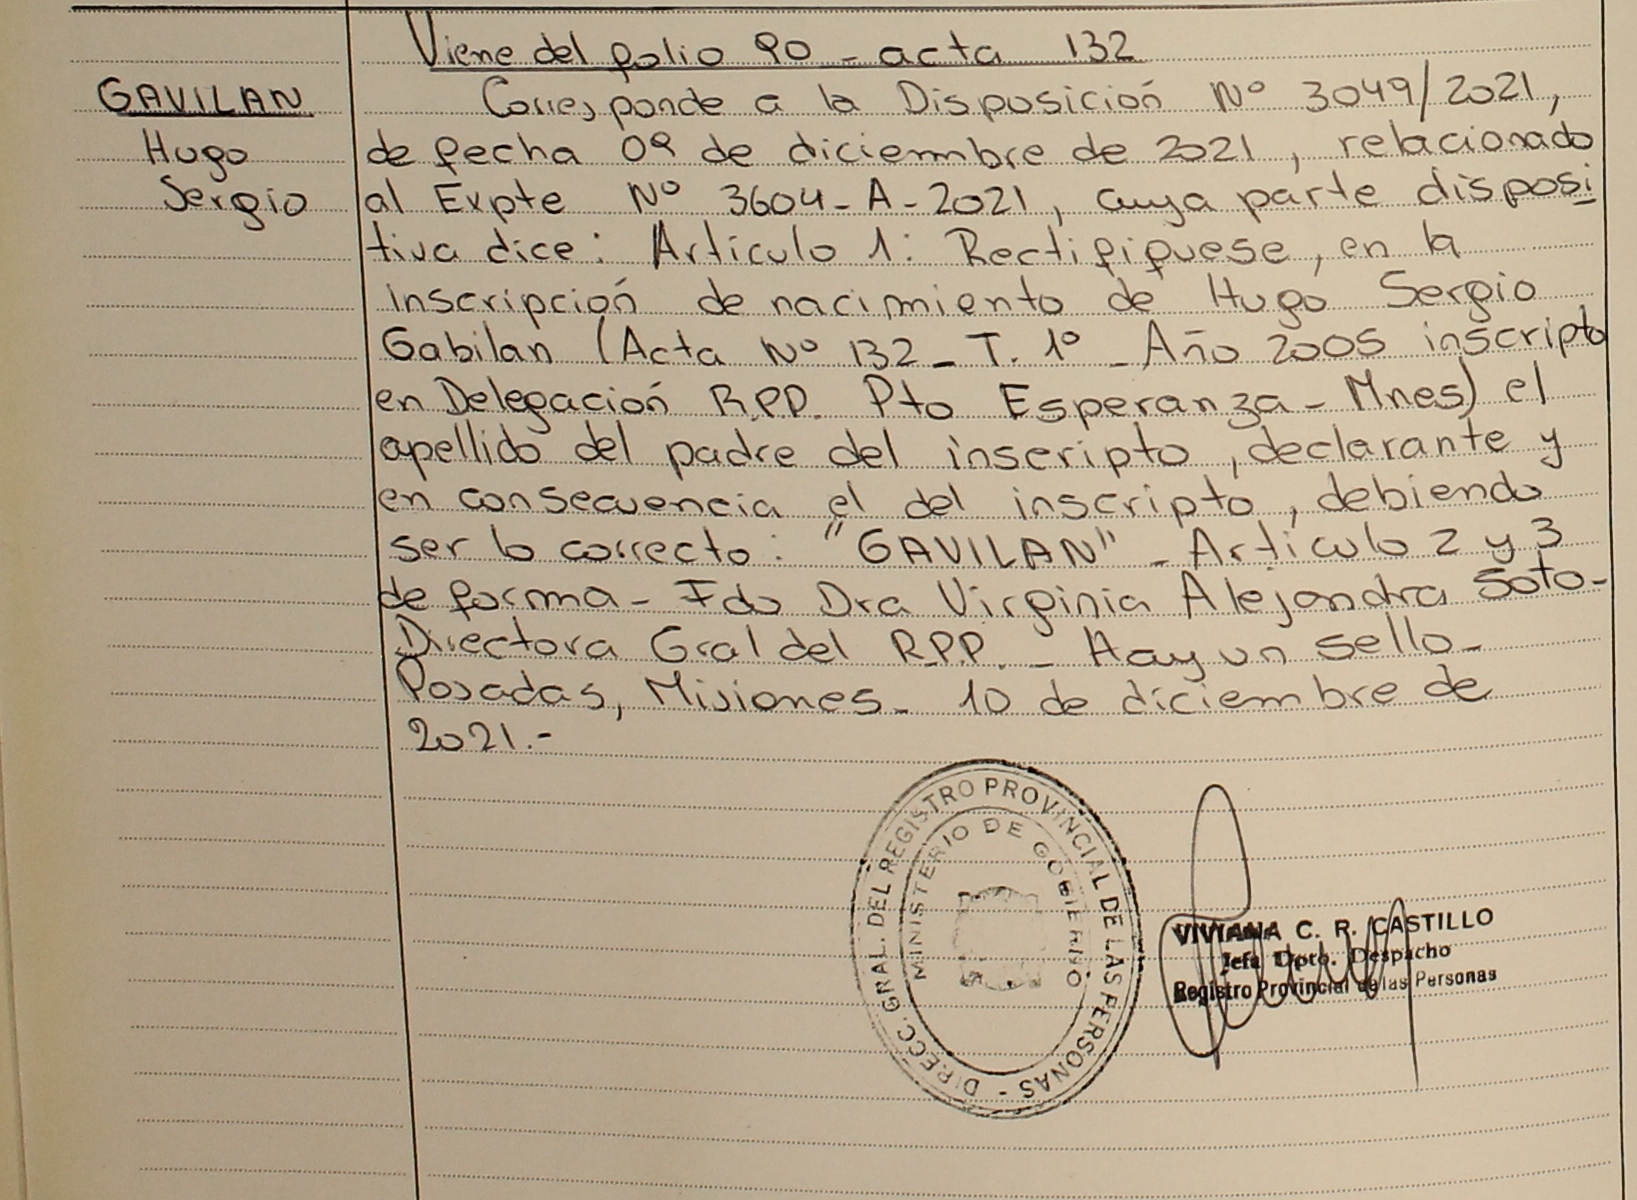 Viene del folio 90 - acta 132
GAVILAN
Hugo
Sergio
Corresponde a la Disposición Nº 3049/2021,
de fecha 09 de diciembre de 2021, relacionado
al Expte Nº 3604-A-2021, cuya parte disposi
tiva dice: Artículo 1: Rectifífuese, en la
inscripción de nacimiento de Hugo Sergio
Gabilan (Acta Nº 132 - T. 1º - Año 2005 inscripto
en Delegación R.P.P. Pto Esperanza - Mnes) el
apellido del padre del inscripto, declarante y
en consecuencia el del inscripto, debiendo
ser lo correcto: "GAVILAN" - Artículo 2 y 3
de forma - Fdo Dra Virginia Alejandra Soto-
Directora Gral del R.P.P. - Hay un sello-
Posadas, Misiones - 10 de diciembre de
2021.-
DIRECC. GRAL. DEL REGISTRO PROVINCIAL DE LAS PERSONAS -
MINISTERIO DE GOBIERNO
VIVIANA C. R. CASTILLO
Jefa Dpto. Despacho
Registro Provincial de las Personas